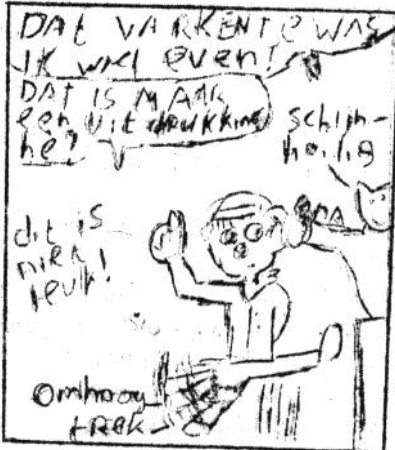 DAt VARKENTJE WAS
IK WEL even!
DAT IS MAAR
een uitdrukking
he?
schijn-
heilig
dit is
niet
leuk!
Omhoog
tRek